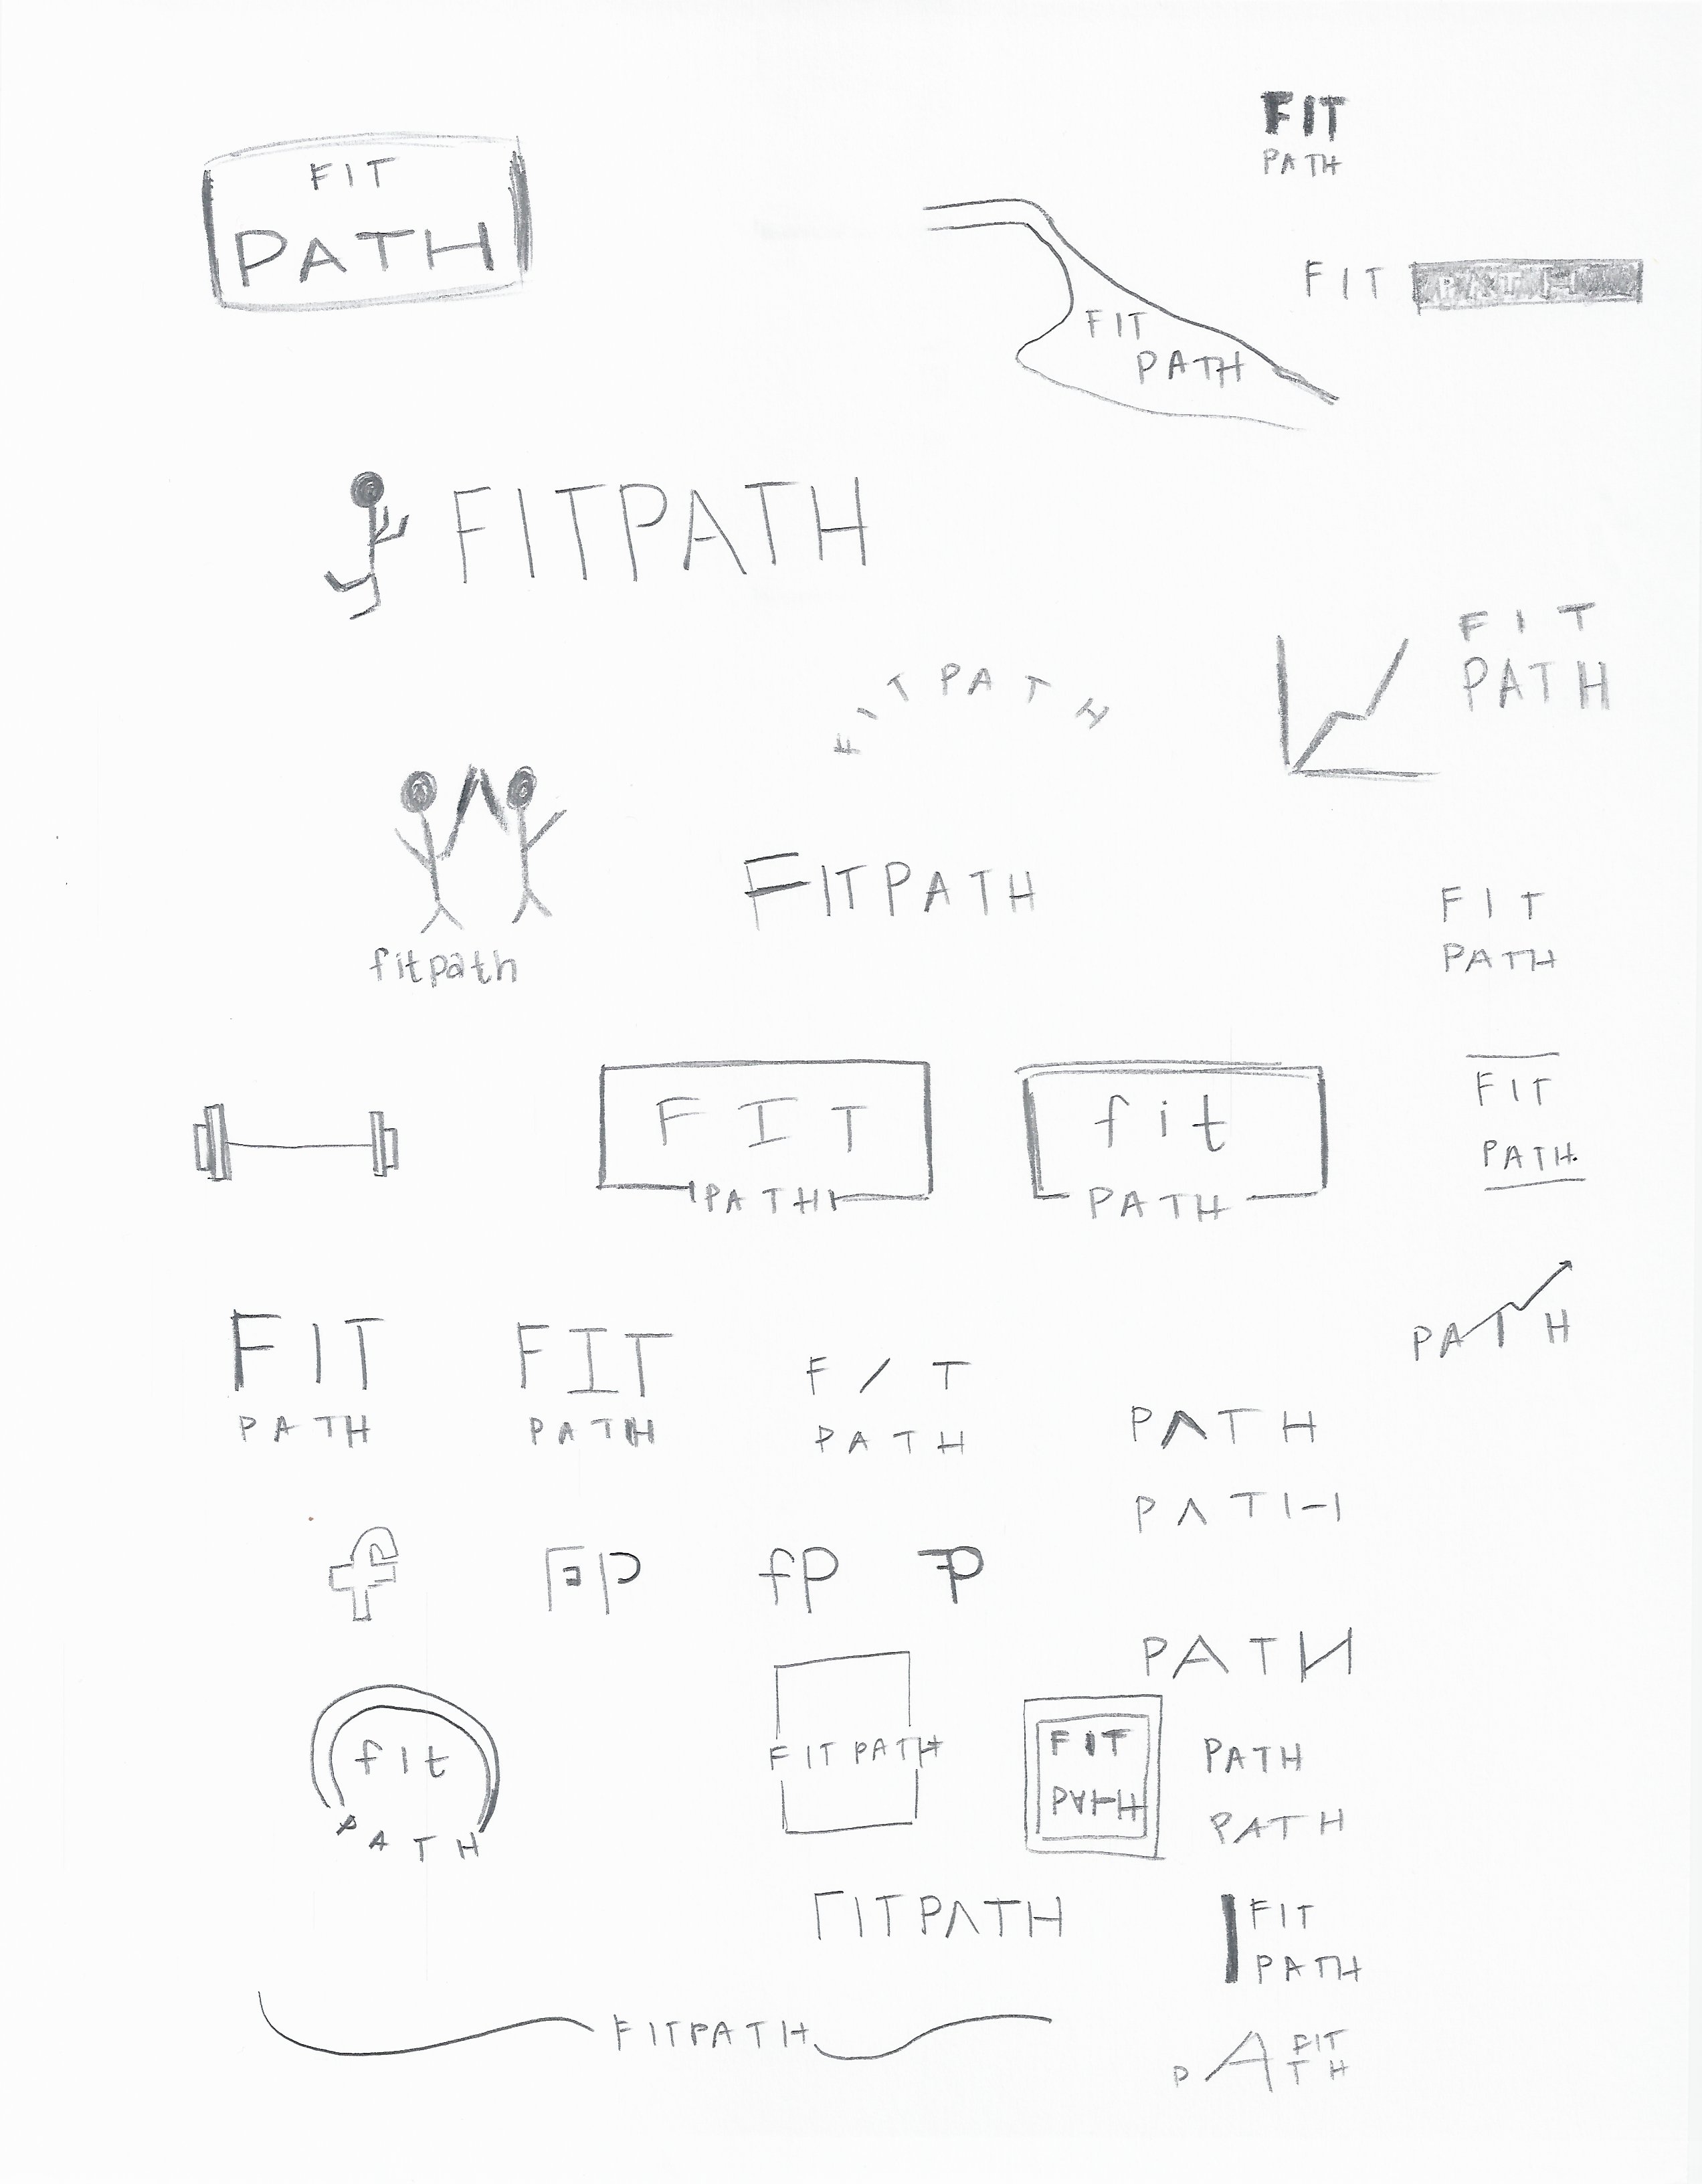 FIT
PATH
FIT
PATH
FIT PATH
FIT
PATH
FITPATH
FIT
PATH
FITPATH
fitpath
FITPATH
FIT
PATH
FIT
PATH
fit
PATH
FIT
PATH.
PATH
FIT
PATH
FIT
PATH
F/T
PATH
PATH
PATH
f
FP
fP
FP
PATH
fit
PATH
FIT PATH
FIT
PATH
PATH
PATH
FITPATH
FIT
PATH
FITPATH
FIT
PATH